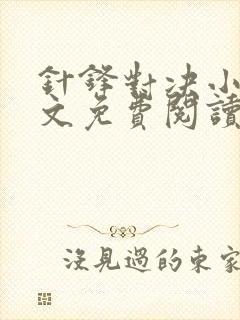 針鋒對決小
文免費閱讀
沒見過的東家